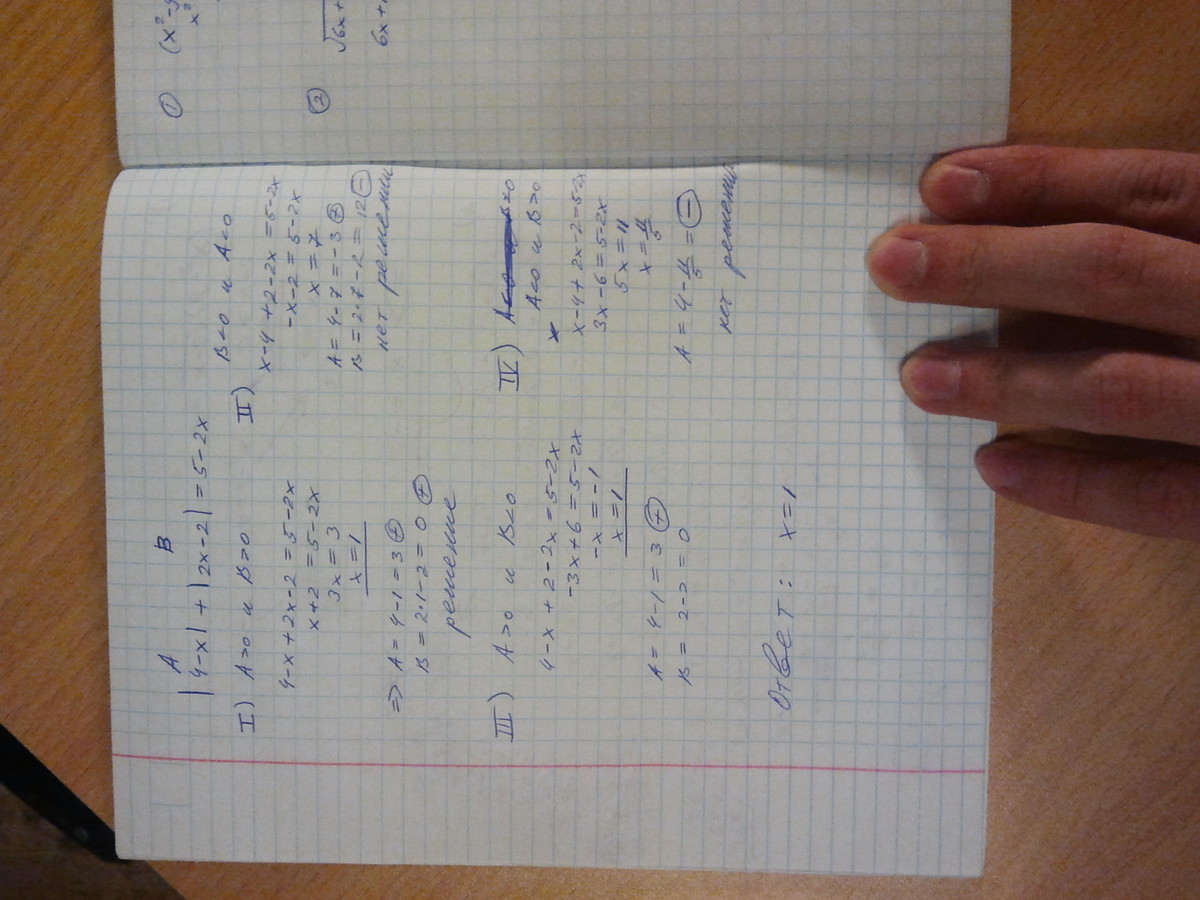 A B
|4-x| + |2x-2| = 5-2x
I) A>0 и B>0
4-x+2x-2=5-2x
x+2=5-2x
3x=3
x=1
=> A=4-1=3 +
B=2·1-2=0 +
решение
II) B<0 и A<0
x-4+2-2x=5-2x
-x-2=5-2x
x=7
A=4-7=-3 +
B=2·7-2=12 -
нет решений
III) A>0 и B<0
4-x+2-2x=5-2x
-3x+6=5-2x
-x=-1
x=1
A=4-1=3 +
B=2-2=0
IV)
A<0 и B>0
x-4+2x-2=5-2x
3x-6=5-2x
5x=11
x=11/5
A=4-11/5= -
нет решений
Ответ: x=1
1 (x²-9
x²
2 √6x+
6x+